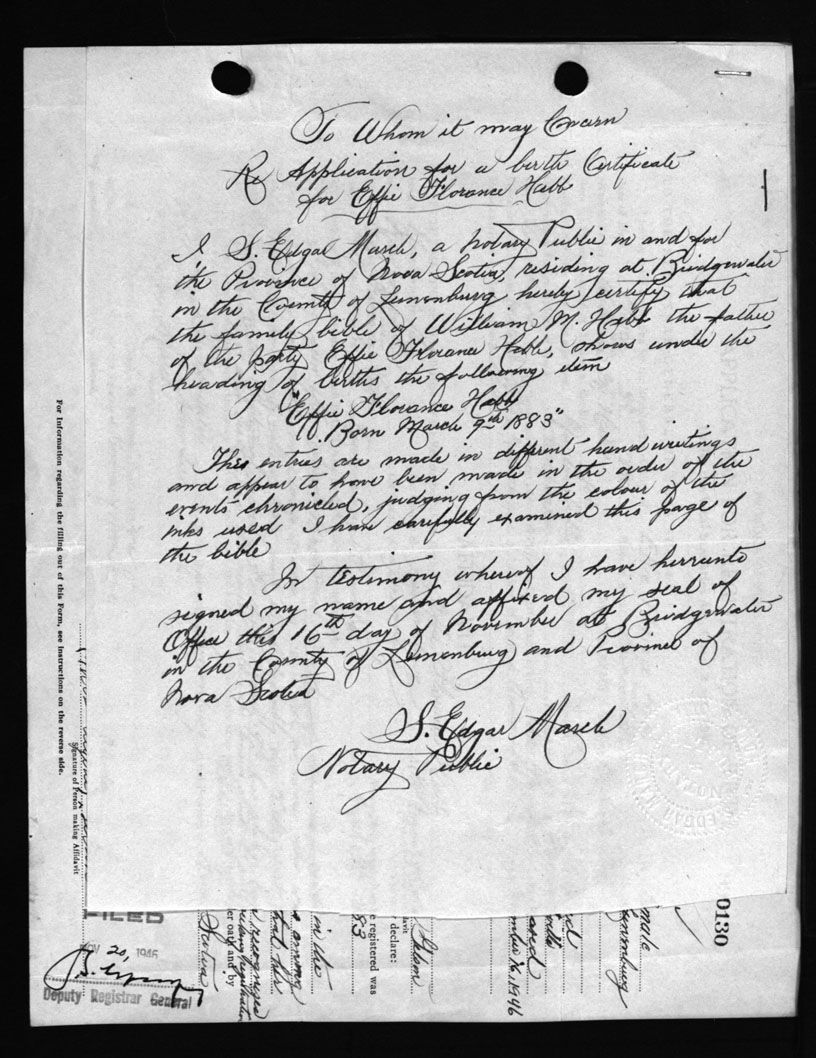 To Whom it may Concern
Re Application for a birth Certificate
for Effie Florance Hebb
I S. Edgar March, a Notary Public in and for
the Province of Nova Scotia, residing at Bridgewater
in the County of Lunenburg hereby certify that
the family bible of William M. Hebb the father
of the party Effie Florance Hebb, shows under the
heading of births the following item
"Effie Florance Hebb
Born March 9th 1883"
This entries are made in different handwritings
and appear to have been made in the order of the
events chronicled, judging from the colour of the
inks used I have carefully examined this page of
the bible
In testimony whereof I have hereunto
signed my name and affixed my seal of
Office this 16th day of November at Bridgewater
in the County of Lunenburg and Province of
Nova Scotia
S. Edgar March
Notary Public
For Information regarding the filling out of this Form, see Instructions on the reverse side.
Signature of Person making Affidavit
FILED
NOV 20, 1946
Deputy Registrar General
Scotia
er oath and by
in the
e registered was
83
declare:
0130